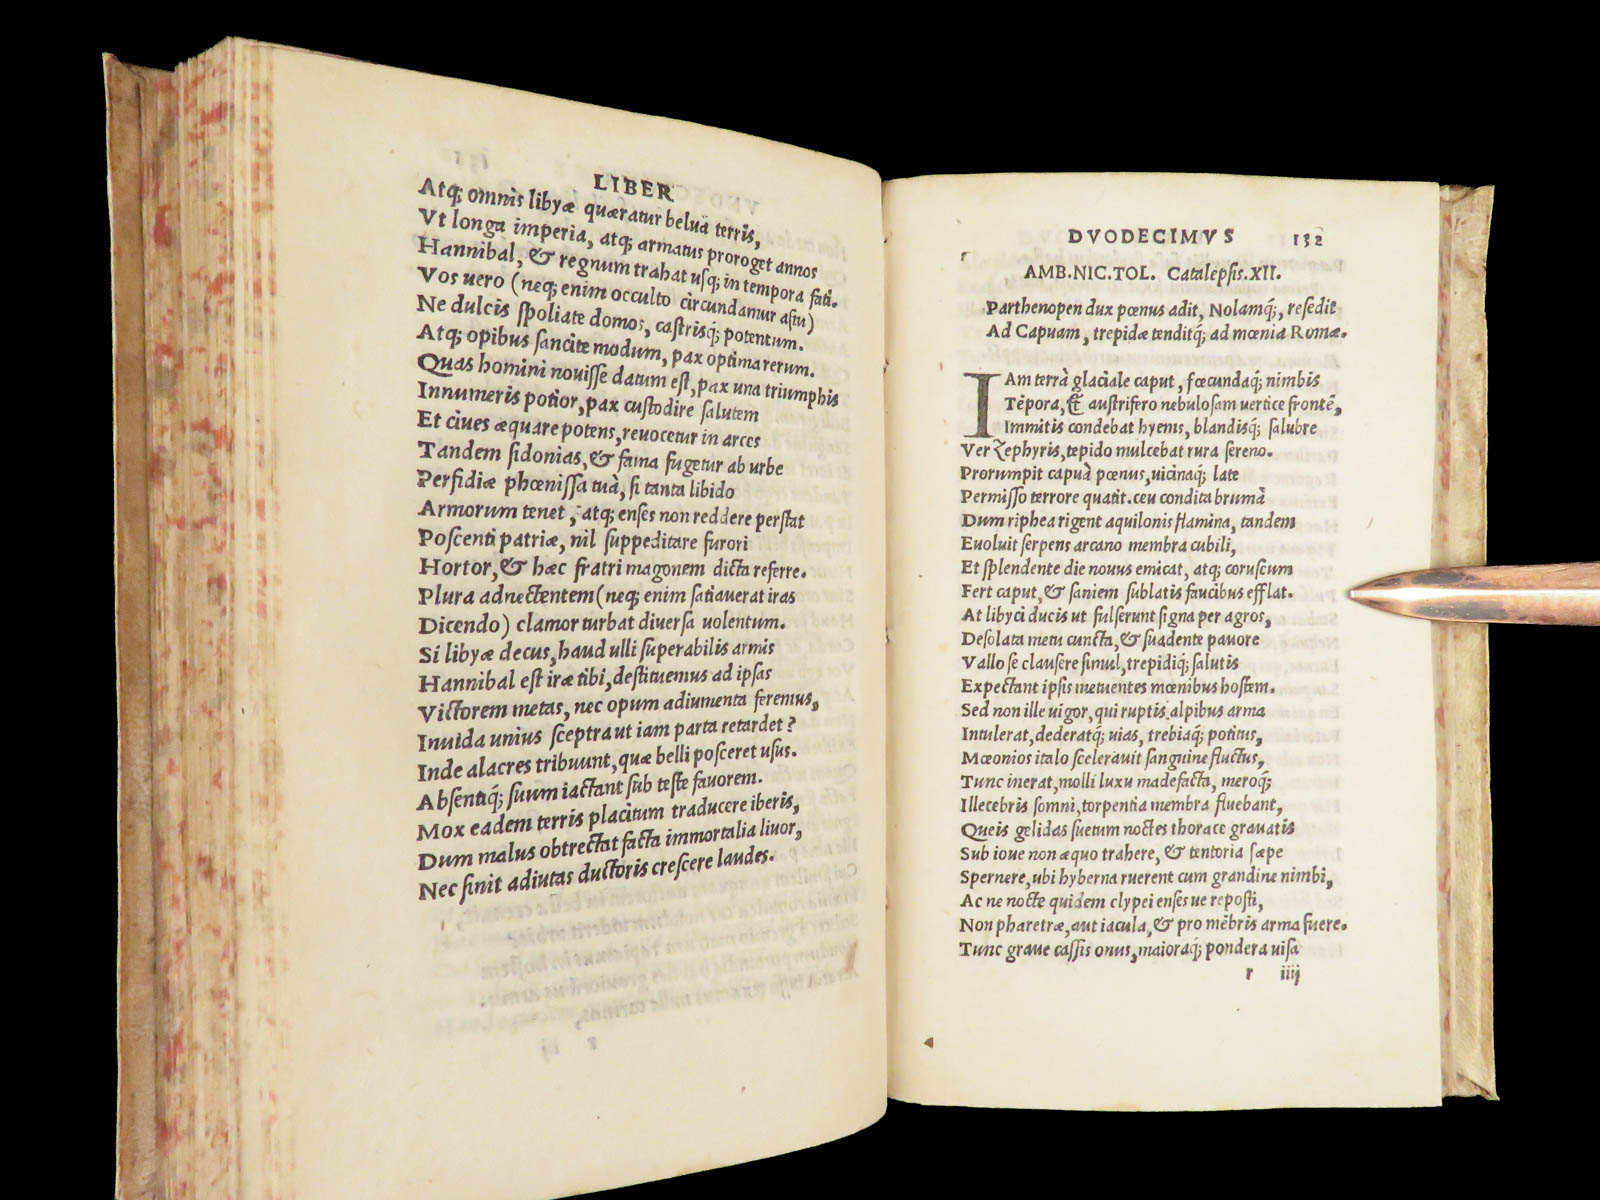 LIBER
Atq; omnis libyæ quæratur belua terris,
Vt longa imperia, atq; armatus proroget annos
Hannibal, & regnum trahat usq; in tempora fati.
Vos uero (neq; enim occulto circundamur astu)
Ne dulcis spoliate domos, castrisq́; potentum.
Atq; opibus sancite modum, pax optima rerum.
Quas homini nouisse datum est, pax una triumphis
Innumeris potior, pax custodire salutem
Et ciues æquare potens, reuocetur in arces
Tandem sidonias, & fama fugetur ab urbe
Perfidiæ phœnissa tuà, si tanta libido
Armorum tenet, atq; enses non reddere perstat
Poscenti patriæ, nil suppeditare furori
Hortor, & hæc fratri magonem dicta referre.
Plura adnectentem (neq; enim satiauerat iras
Dicendo) clamor turbat diuersa uolentum.
Si libyæ decus, haud ulli superabilis armis
Hannibal est iræ tibi, destituemus ad ipsas
Victorem metas, nec opum adiumenta feremus,
Inuida unius sceptra ut iam parta retardet?
Inde alacres tribuunt, quæ belli posceret usus.
Absentiq́; suum iactant sub teste fauorem.
Mox eadem terris placitum traducere iberis,
Dum malus obtrectat facta immortalia liuor,
Nec sinit adiutas ductoris crescere laudes.
DVODECIMVS 132
AMB.NIC.TOL. Catalepsis.XII.
Parthenopen dux pœnus adit, Nolamq́;, resedit
Ad Capuam, trepidæ tenditq́; ad mœnia Romæ.
IAm terrà glaciale caput, fœcundaq́; nimbis
Tēpora, & austrifero nebulosam uertice frontē,
Immitis condebat hyems, blandisq́; salubre
Ver Zephyris, tepido mulcebat rura sereno.
Prorumpit capuà pœnus, uicinaq́; late
Permisso terrore quatit. ceu condita brumà
Dum riphea rigent aquilonis flamina, tandem
Euoluit serpens arcano membra cubili,
Et splendente die nouus emicat, atq; coruscum
Fert caput, & saniem sublatis faucibus efflat.
At libyci ducis ut fulserunt signa per agros,
Desolata metu cuncta, & suadente pauore
Vallo se clausere simul, trepidiq́; salutis
Expectant ipsis metuentes mœnibus hostem.
Sed non ille uigor, qui ruptis alpibus arma
Intulerat, dederatq́; uias, trebiaq́; potitus,
Mœonios italo scelerauit sanguine fluctus,
Tunc inerat, molli luxu madefacta, meroq́;
Illecebris somni, torpentia membra fluebant,
Queis gelidas suetum noctes thorace grauatis
Sub ioue non æquo trahere, & tentoria sæpe
Spernere, ubi hyberna ruerent cum grandine nimbi,
Ac ne nocte quidem clypei ensesue reposti,
Non pharetræ, aut iacula, & pro mēbris arma fuere.
Tunc graue cassis onus, maioraq́; pondera uisa
r iiij